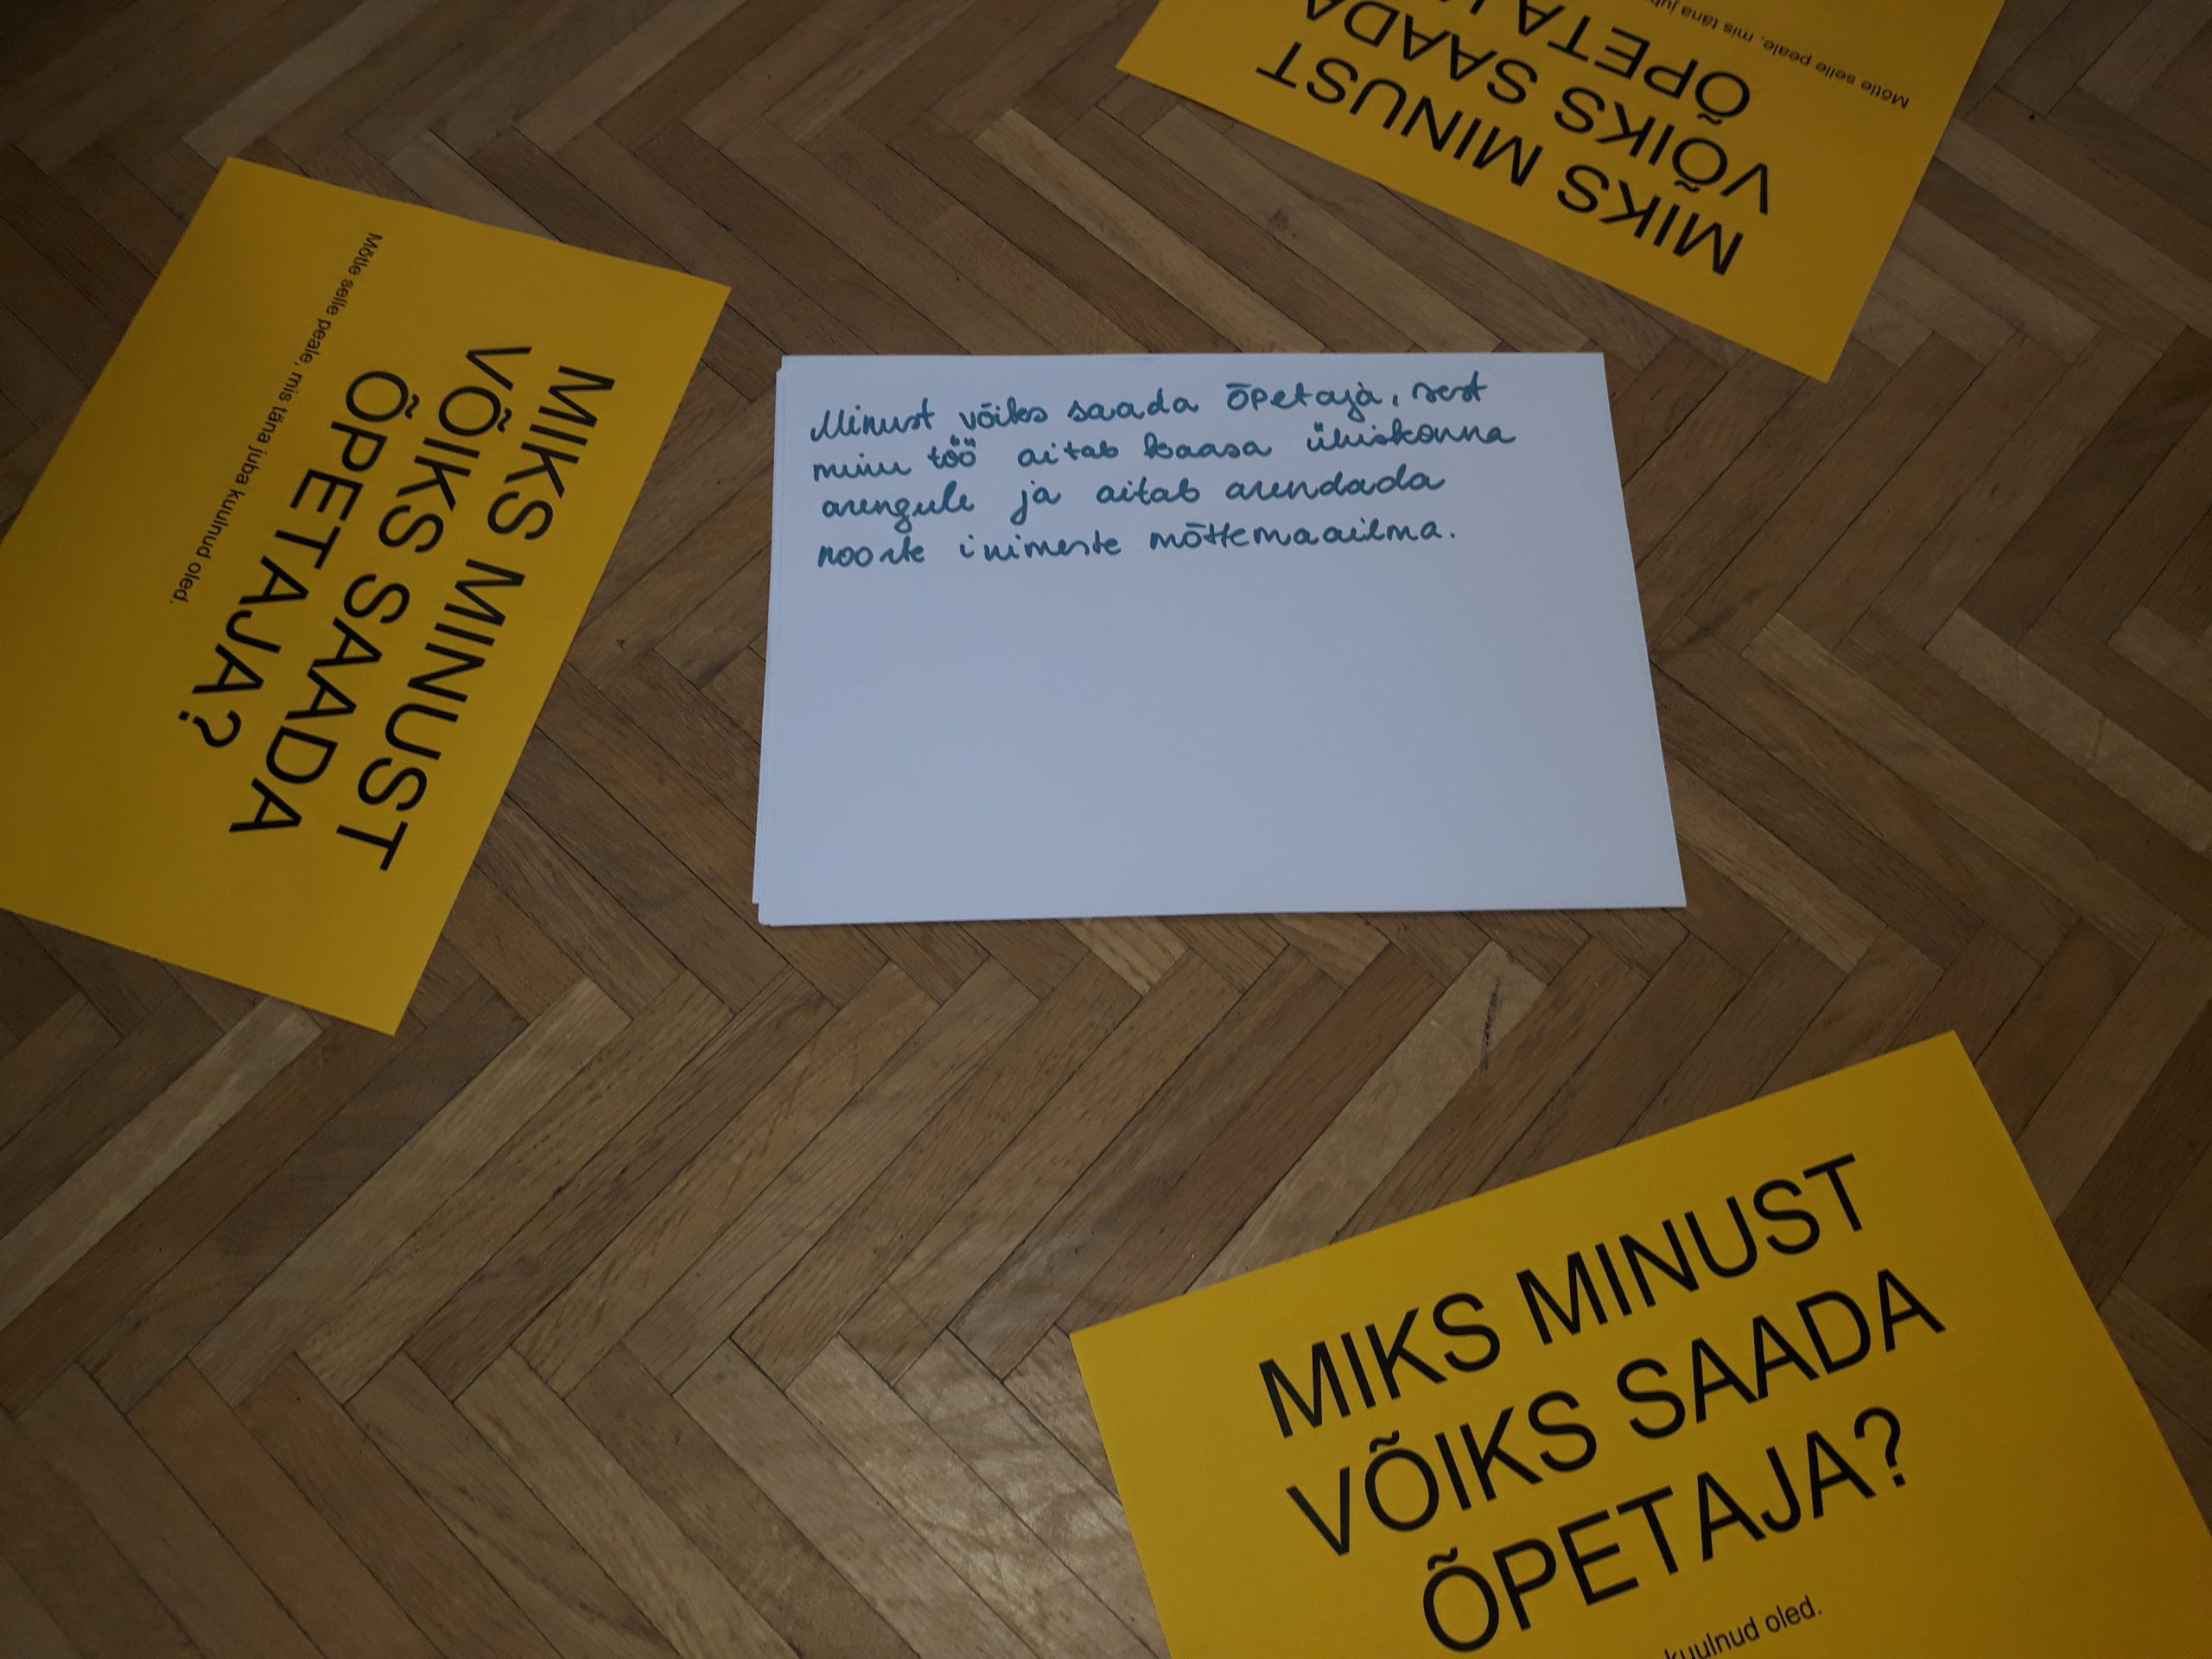 Mõtle selle peale, mis täna jub
ÕPETAJ
VÕIKS SAADA
MIKS MINUST
MIKS MINUST
VÕIKS SAADA
ÕPETAJA?
Mõtle selle peale, mis täna juba kuulnud oled.
Minust võiks saada õpetaja, sest
minu töö aitab kaasa ühiskonna
arengule ja aitab arendada
noorte inimeste mõttemaailma.
MIKS MINUST
VÕIKS SAADA
ÕPETAJA?
kuulnud oled.